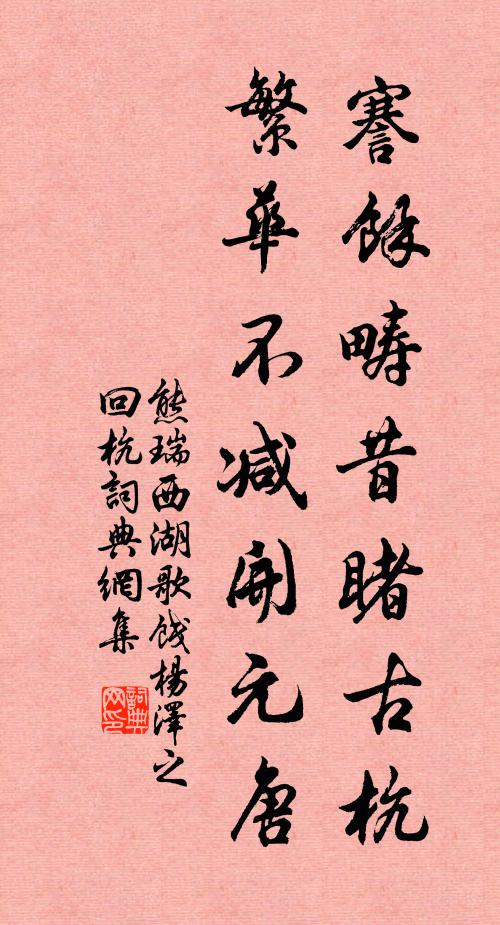 謇餘疇昔睹古杭
繁華不減開元唐
熊瑞西湖歌餞楊澤之
回杭詞典網集
詞典网印